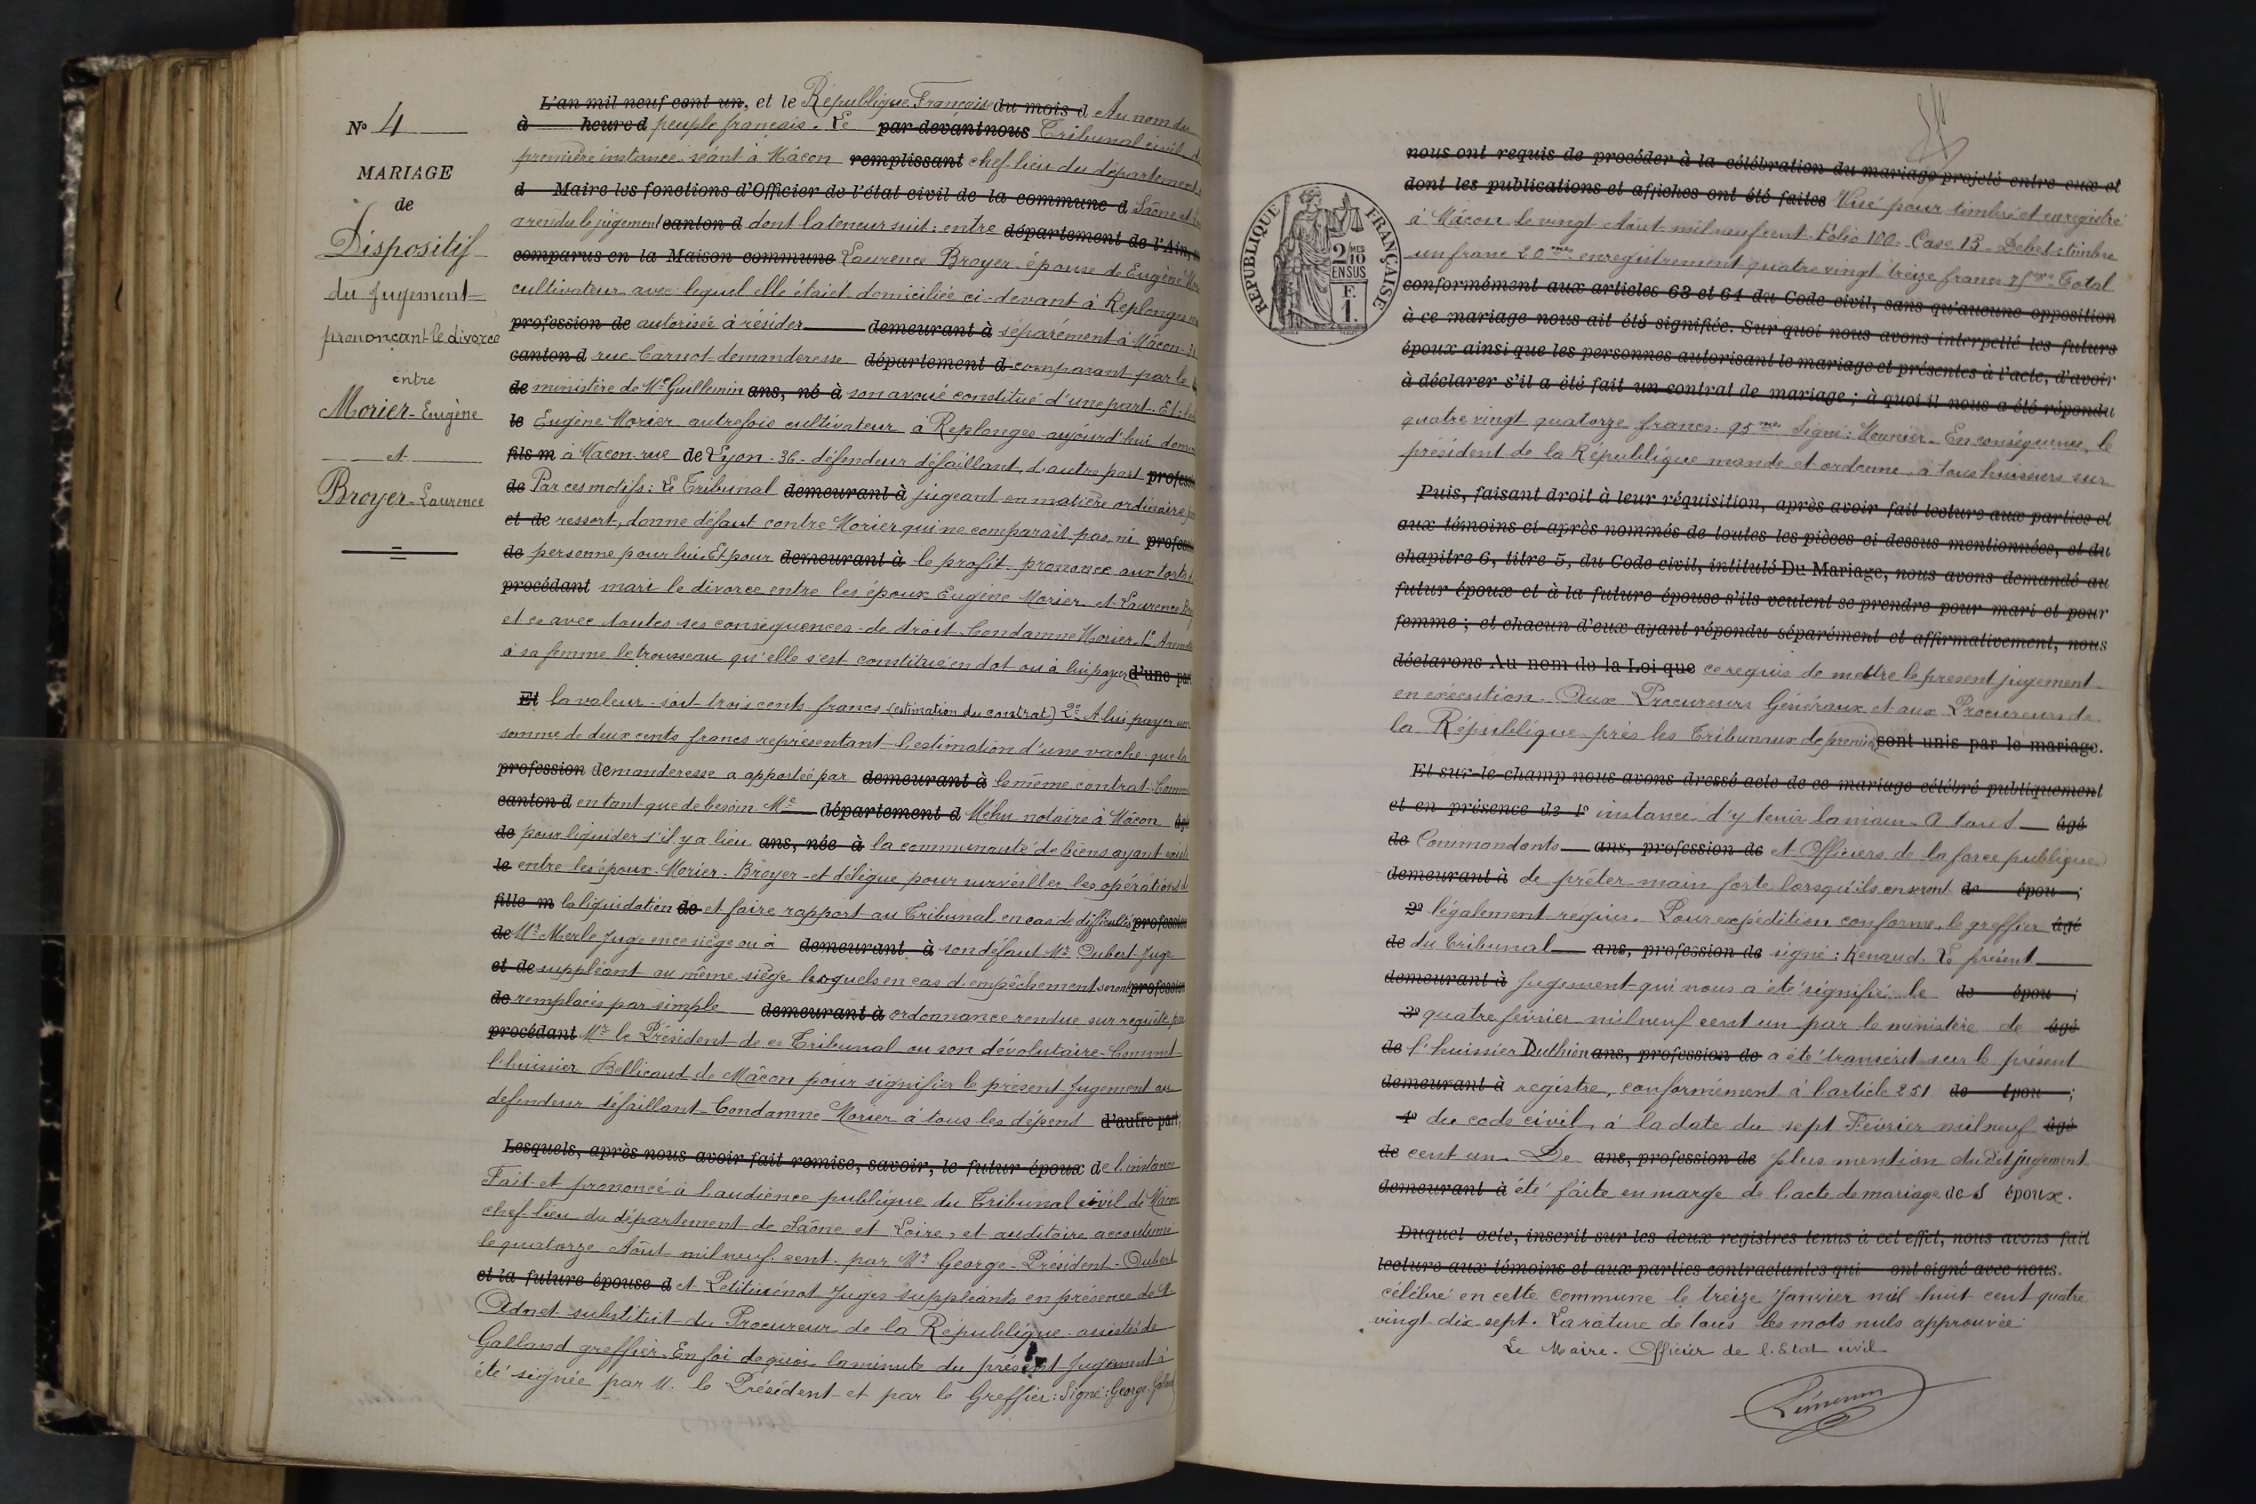 N° 4
MARIAGE
de
Dispositif
du Jugement
prononçant le divorce
entre
Morier Eugène
et
Broyer Laurence
L'an mil neuf cent un, et le République Française du mois d Au nom du
à heure d peuple français. Le par-devant nous Tribunal civil
première instance, séant à Mâcon remplissant chef-lieu du département
d Maire les fonctions d'Officier de l'état civil de la commune d Saône et
a rendu le jugement canton d dont la teneur suit : entre département de l'Ain,
comparus en la Maison commune Laurence Broyer épouse de Eugène
cultivateur avec lequel elle était domiciliée ci-devant à Replonges
profession de autorisée à résider demeurant à séparément à Mâcon
canton d rue Carnot demanderesse département d comparant par le
de ministère de Me Guillemin ans, né à son avoué constitué d'une part. Et
le Eugène Morier autrefois cultivateur à Replonges aujourd'hui
fils m à Macon rue de Lyon 36 défendeur défaillant d'autre part
de Par ces motifs : Le Tribunal demeurant à jugeant en matière ordinaire
et de ressort, donne défaut contre Morier qui ne comparait pas ni
de personne pour lui. Et pour demeurant à le profit prononce aux torts
procédant mari le divorce entre les époux Eugène Morier et Laurence
et ce avec toutes ses conséquences de droit. Condamne Morier 1°
à sa femme le trousseau qu'elle s'est constitué en dot ou à lui payer d'une part
Et la valeur soit trois cents francs (estimation du contrat) 2° A lui payer
somme de deux cents francs représentant l'estimation d'une vache que la
profession demanderesse a apportée par demeurant à le même contrat.
canton d en tant que de besoin Me département d Mehu notaire à Mâcon âgé
de pour liquider s'il y a lieu ans, née à la communauté de biens ayant
le entre les époux Morier-Broyer et délègue pour surveiller les opérations de
fille m la liquidation de et faire rapport au Tribunal en cas de difficultés profession
de Mr Merle Juge en ce siège ou à demeurant à son défaut Mr Oubert Juge
et de suppléant au même siège lesquels en cas d'empêchement seront profession
de remplacés par simple demeurant à ordonnance rendue sur requête par
procédant Mr le Président de ce Tribunal ou son dévolutaire. Commet
l'huissier Bellicaud de Mâcon pour signifier le présent Jugement au
défendeur défaillant. Condamne Morier à tous les dépens d'autre part,
Lesquels, après nous avoir fait remise, savoir, le futur époux de l'instance
Fait et prononcé à l'audience publique du Tribunal civil de Mâcon
chef-lieu du département de Saône et Loire, et auditoire accoutumé
le quatorze Août mil neuf cent par Mr George Président Oubert
et la future épouse d et Petitiénot Juges suppléants en présence de
Adnet substitut du Procureur de la République assistés de
Galland greffier. En foi de quoi la minute du présent Jugement à
été signée par M. le Président et par le Greffier : Signé : George
nous ont requis de procéder à la célébration du mariage projeté entre eux et
dont les publications et affiches ont été faites Visé pour timbre et enregistré
à Mâcon le vingt Août mil neuf cent Folio 100 Case 13 Debet timbre
un franc 20 mes enregistrement quatre vingt treize francs 75 mes Total
conformément aux articles 63 et 64 du Code civil, sans qu'aucune opposition
à ce mariage nous ait été signifiée. Sur quoi nous avons interpellé les futurs
époux ainsi que les personnes autorisant le mariage et présentes à l'acte, d'avoir
à déclarer s'il a été fait un contrat de mariage ; à quoi il nous a été répondu
quatre vingt quatorze francs 95 mes Signé : Meunier. En conséquence, le
président de la République mande et ordonne à tous huissiers sur
Puis, faisant droit à leur réquisition, après avoir fait lecture aux parties et
aux témoins ci-après nommés de toutes les pièces ci-dessus mentionnées, et du
chapitre 6, titre 5, du Code civil, intitulé Du Mariage, nous avons demandé au
futur époux et à la future épouse s'ils veulent se prendre pour mari et pour
femme ; et chacun d'eux ayant répondu séparément et affirmativement, nous
déclarons Au nom de la Loi que ce requis de mettre le present jugement
en exécution. Aux Procureurs Généraux et aux Procureurs de
la République près les Tribunaux de première sont unis par le mariage.
Et sur-le-champ nous avons dressé acte de ce mariage célébré publiquement
et en présence de 1° instance d'y tenir la main. A tous âgé
de Commandants ans, profession de et Officiers de la force publique
demeurant à de prêter main forte lorsqu'ils en seront de épou ;
2° légalement requis. Pour expédition conforme, le greffier âgé
de du Tribunal ans, profession de signé : Renaud. Le présent
demeurant à Jugement qui nous a été signifié le de épou ;
3° quatre février mil neuf cent un par le ministère de âgé
de l'huissier Duthion ans, profession de a été transcrit sur le présent
demeurant à registre, conformément à l'article 251 de épou ;
4° du code civil, à la date du sept Février mil neuf âgé
de cent un. De ans, profession de plus mention du dit jugement
demeurant à été faite en marge de l'acte de mariage des époux.
Duquel acte, inscrit sur les deux registres tenus à cet effet, nous avons fait
lecture aux témoins et aux parties contractantes qui ont signé avec nous.
célébré en cette commune le treize Janvier mil huit cent quatre
vingt dix-sept. La rature de tous les mots nuls approuvée.
Le Maire. Officier de l'Etat civil
RÉPUBLIQUE FRANÇAISE
2/10
EN SUS
F.
1.